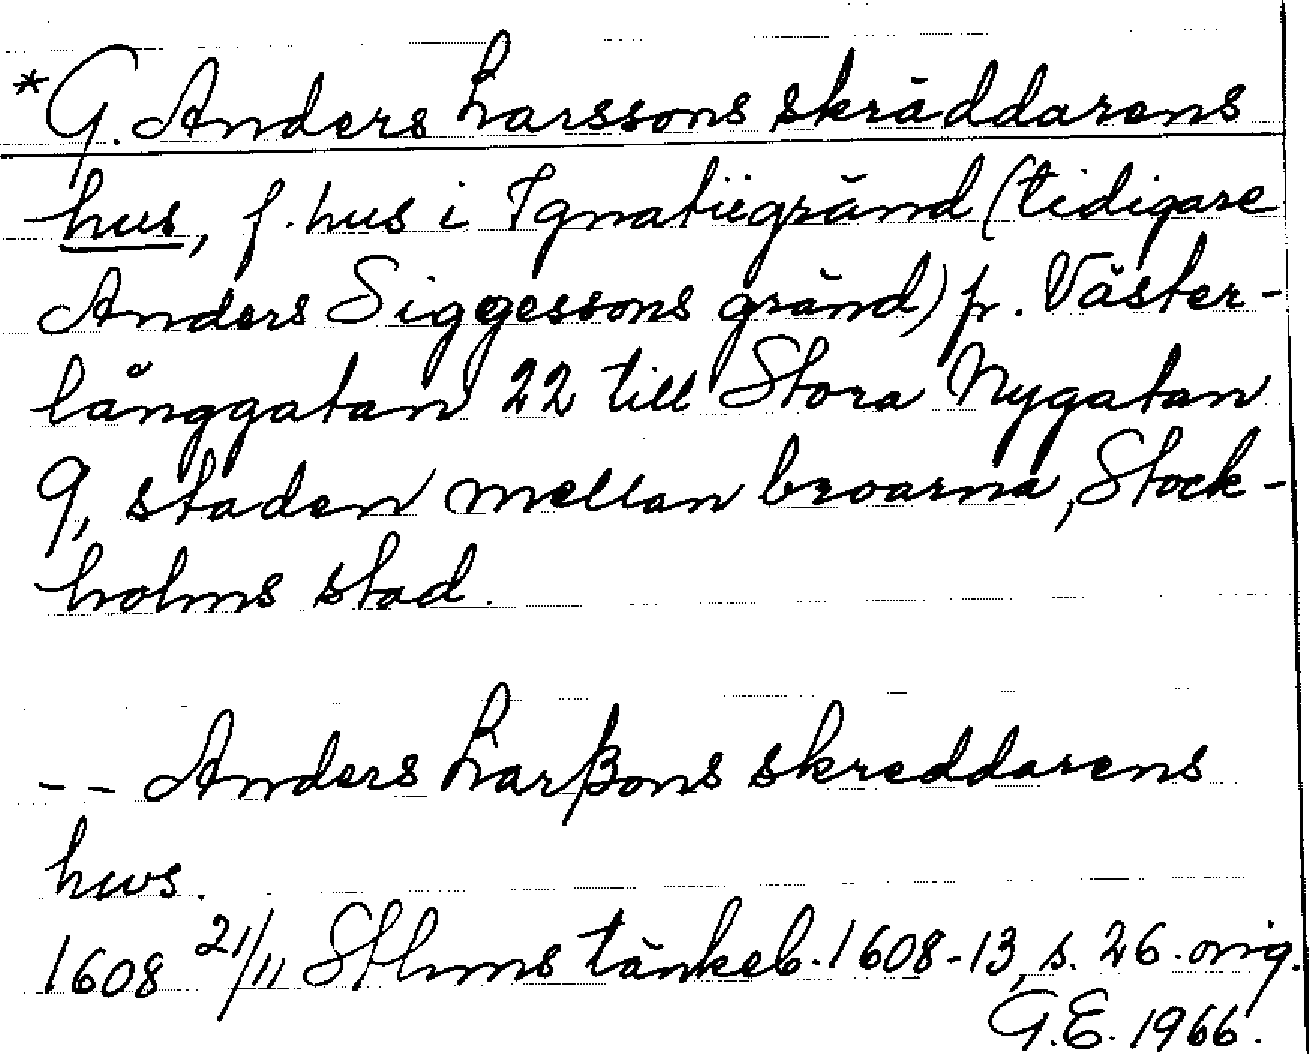 *G. Anders Larssons skräddarens
hus, f. hus i Ignatiigränd (tidigare
Anders Siggessons gränd) fr. Väster-
långgatan 22 till Stora Nygatan
9, staden mellan broarna, Stock-
holms stad.
-- Anders Larßons skreddarens
hws.
1608 21/11 Sthms tänkeb. 1608-13, s. 26. orig.
G.E. 1966.